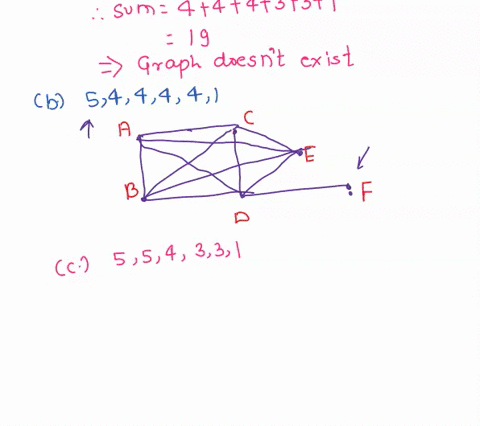 ∴ sum = 4+4+4+3+3+1
= 19
=> Graph doesn't exist
(b) 5,4,4,4,4,1
A
C
E
B
F
D
(c.) 5,5,4,3,3,1